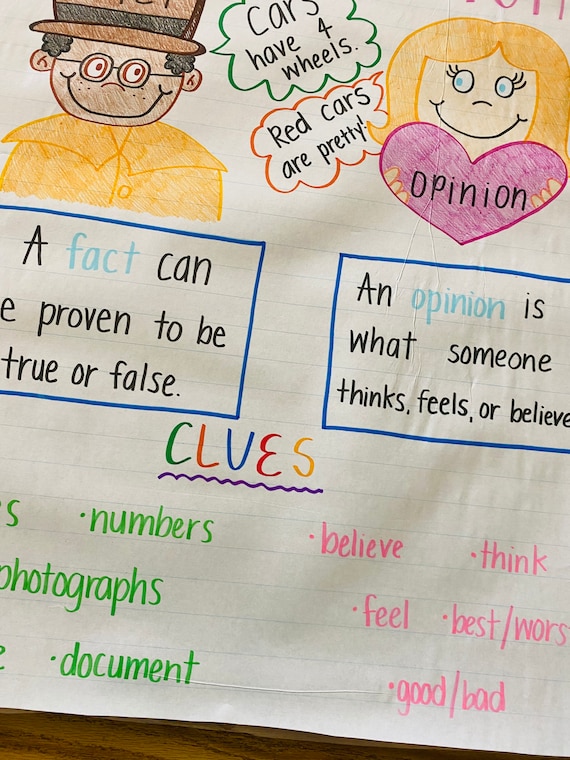 Cars
have 4
wheels.
Red cars
are pretty!
opinion
A fact can
e proven to be
true or false.
An opinion is
what someone
thinks, feels, or believe
CLUES
s • numbers
photographs
e • document
• believe • think
• feel • best/wors
• good/bad